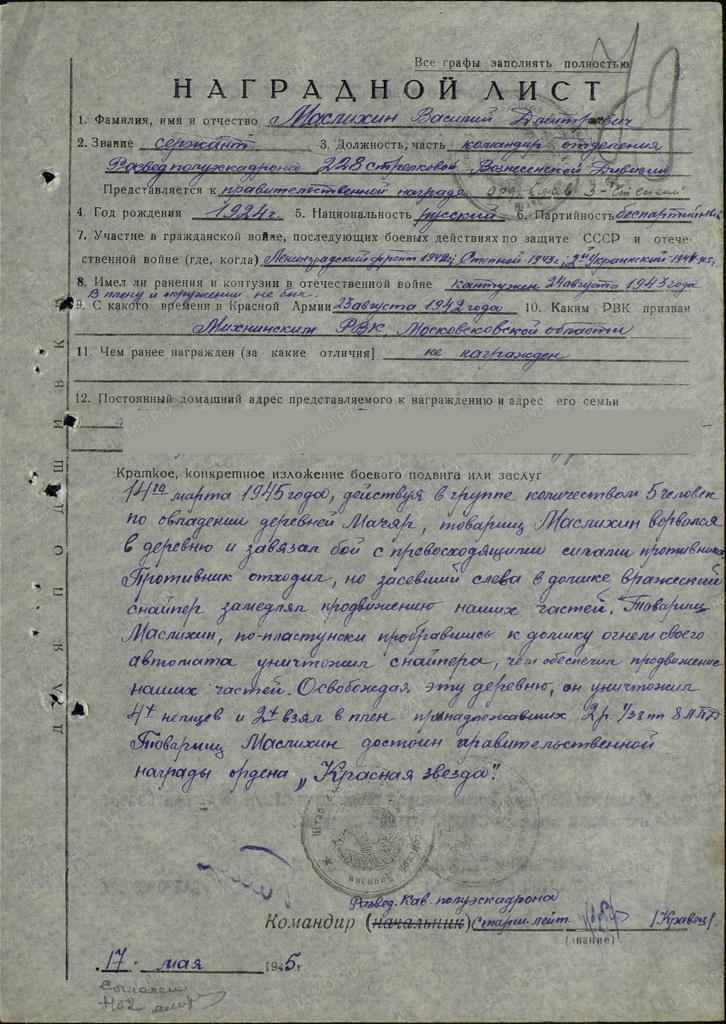 79
Все графы заполнять полностью
НАГРАДНОЙ ЛИСТ
1. Фамилия, имя и отчество Маслихин Василий Дмитриевич
2. Звание сержант 3. Должность, часть командир отделения
Разведполуэскадрона 228 стрелковой Вознесенской Дивизии
Представляется к правительственной награде орд. Слав 3-степени
4. Год рождения 1924г. 5. Национальность русский 6. Партийность беспартийный
7. Участие в гражданской войне, последующих боевых действиях по защите СССР и отече-
ственной войне (где, когда) Ленинградский фронт 1942г; Степной-1943г.; 2й Украинский 1944-45г.
8. Имел ли ранения и контузии в отечественной войне контужен 24 августа 1943 года
В плену и окружении не был.
9. С какого времени в Красной Армии 23 августа 1942 года 10. Каким РВК призван
Михнинским РВК, Московсковской области
11. Чем ранее награжден (за какие отличия] не награжден
12. Постоянный домашний адрес представляемого к награждению и адрес его семьи
ДЛЯ ПОДШИВКИ
Краткое, конкретное изложение боевого подвига или заслуг
14го марта 1945 года, действуя в группе количеством 5 человек
по овладении деревней Мачяр, товарищ Маслихин ворвался
в деревню и завязал бой с превосходящими силами противника
Противник отходил, но засевший слева в домике вражеский
снайпер замедлял продвижению наших частей. Товарищ
Маслихин, по-пластунски пробравшись к домику огнем своего
автомата уничтожил снайпера, чем обеспечил продвижение
наших частей. Освобождая эту деревню, он уничтожил
4х немцев и 2х взял в плен принадлежавших 2р. 1/38пп 8ЛПД
Товарищ Маслихин достоин правительственной
награды ордена „Красная звезда".
Развед. Кав. полуэскадрона
Командир (начальник) Старш. лейт. /Кравец/.
(звание)
17 мая 1945г